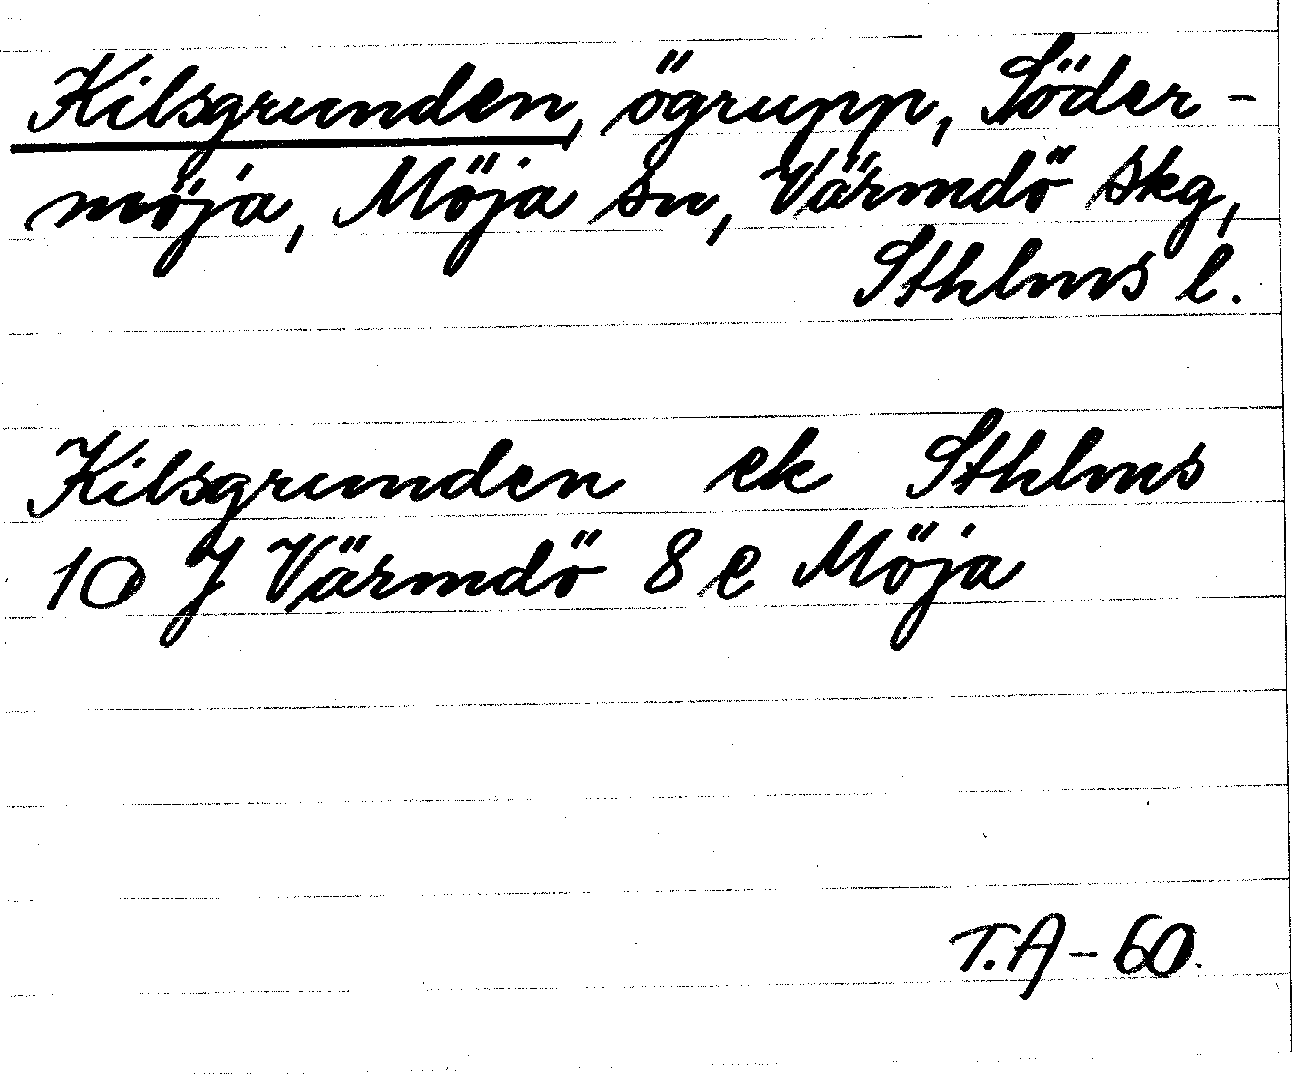 Kilsgrunden, ögrupp, Söder-
möja, Möja sn, Värmdö skg,
Sthlms l.
Kilsgrunden ek Sthlms
10 J Värmdö 8 e Möja
T.A-60.